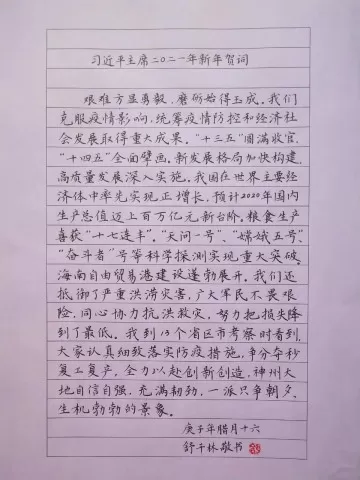 习近平主席二〇二一年新年贺词
艰难方显勇毅，磨砺始得玉成。我们
克服疫情影响，统筹疫情防控和经济社
会发展取得重大成果。“十三五”圆满收官，
“十四五”全面擘画。新发展格局加快构建，
高质量发展深入实施。我国在世界主要经
济体中率先实现正增长，预计2020年国内
生产总值迈上百万亿元新台阶。粮食生产
喜获“十七连丰”。“天问一号”、“嫦娥五号”、
“奋斗者”号等科学探测实现重大突破。
海南自由贸易港建设蓬勃展开。我们还
抵御了严重洪涝灾害，广大军民不畏艰
险，同心协力抗洪救灾，努力把损失降
到了最低。我到13个省区市考察时看到，
大家认真细致落实防疫措施，争分夺秒
复工复产，全力以赴创新创造，神州大
地自信自强、充满韧劲，一派只争朝夕、
生机勃勃的景象。
庚子年腊月十六
舒千林敬书